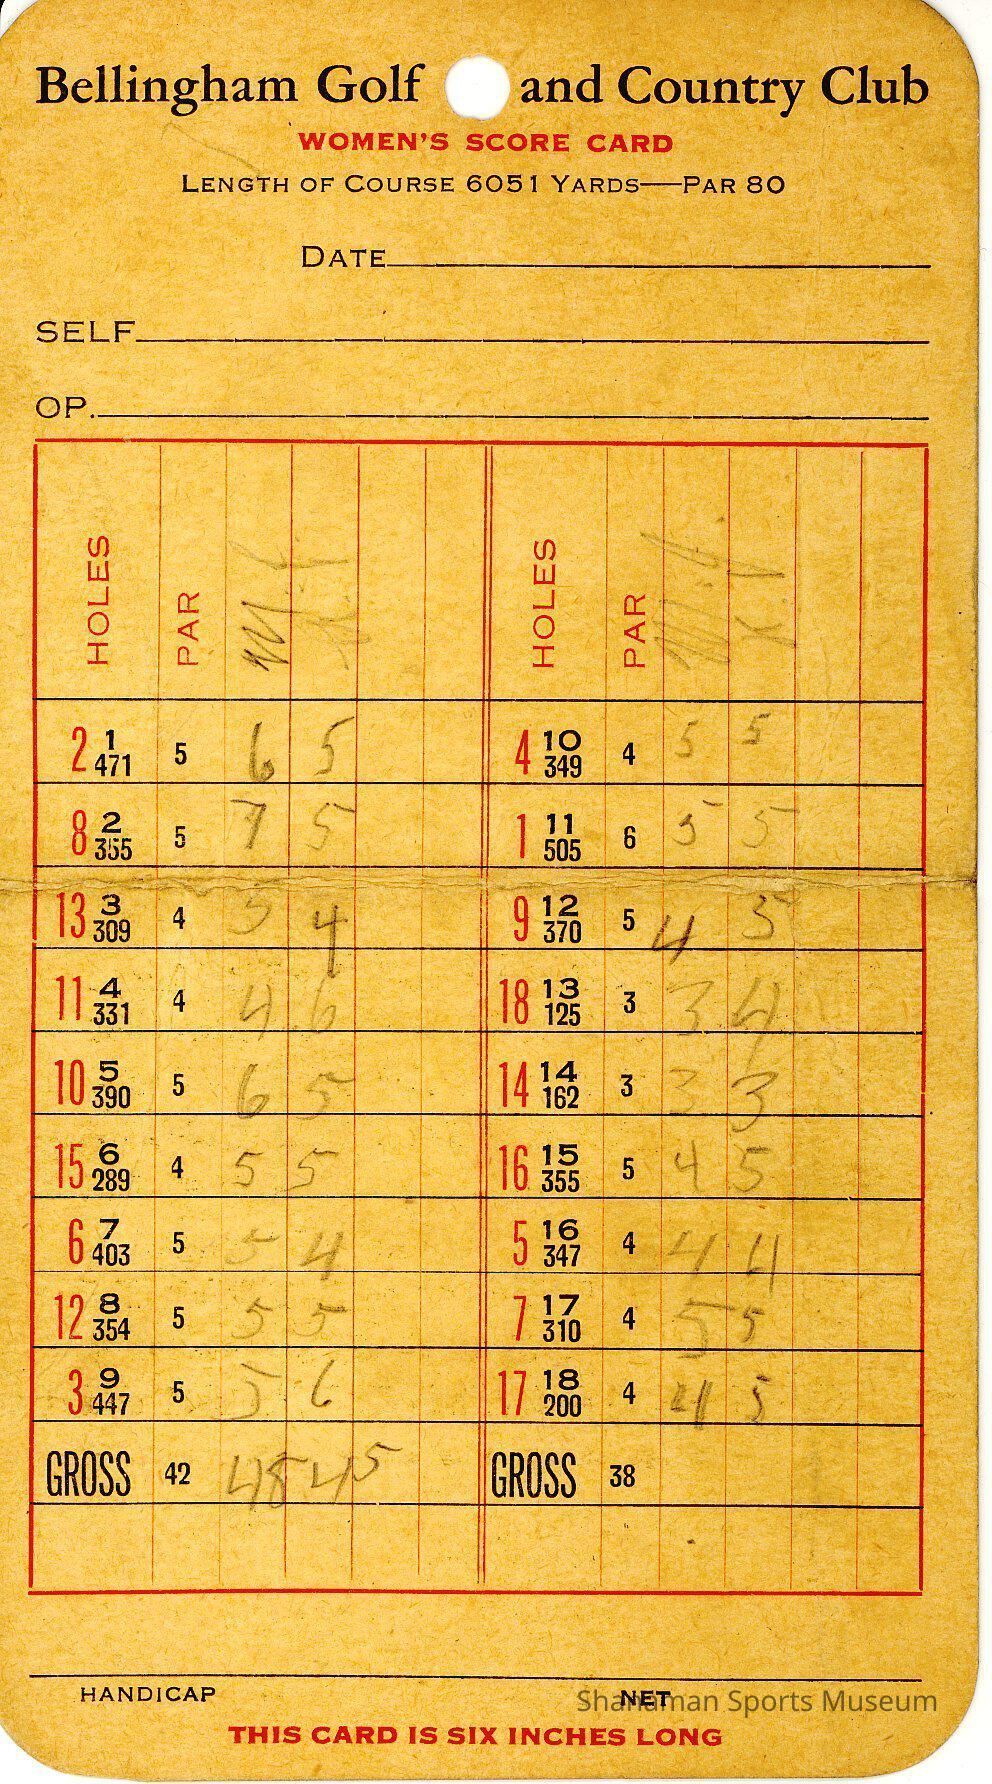 Bellingham Golf and Country Club
WOMEN'S SCORE CARD
LENGTH OF COURSE 6051 YARDS—PAR 80
DATE
SELF
OP.
HOLES PAR HOLES PAR
2 1 471 5 6 5 4 10 349 4 5 5
8 2 355 5 7 5 1 11 505 6 5 5
13 3 309 4 5 4 9 12 370 5 4 5
11 4 331 4 4 6 18 13 125 3 3 4
10 5 390 5 6 5 14 14 162 3 3 3
15 6 289 4 5 5 16 15 355 5 4 5
6 7 403 5 5 4 5 16 347 4 4 4
12 8 354 5 5 5 7 17 310 4 5 5
3 9 447 5 5 6 17 18 200 4 4 5
GROSS 42 48 45 GROSS 38
HANDICAP NET
Shanaman Sports Museum
THIS CARD IS SIX INCHES LONG